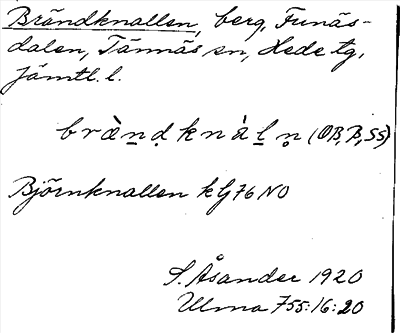 Brändknallen, berg, Funäs-
dalen, Tännäs sn, Hede tg,
Jämtl. l.
bræ̀n̠ḍknàl̠n̥ (OB, P, SS)
Björnknallen k G 76 NO
S. Åsander 1920
Ulma 755:16:20